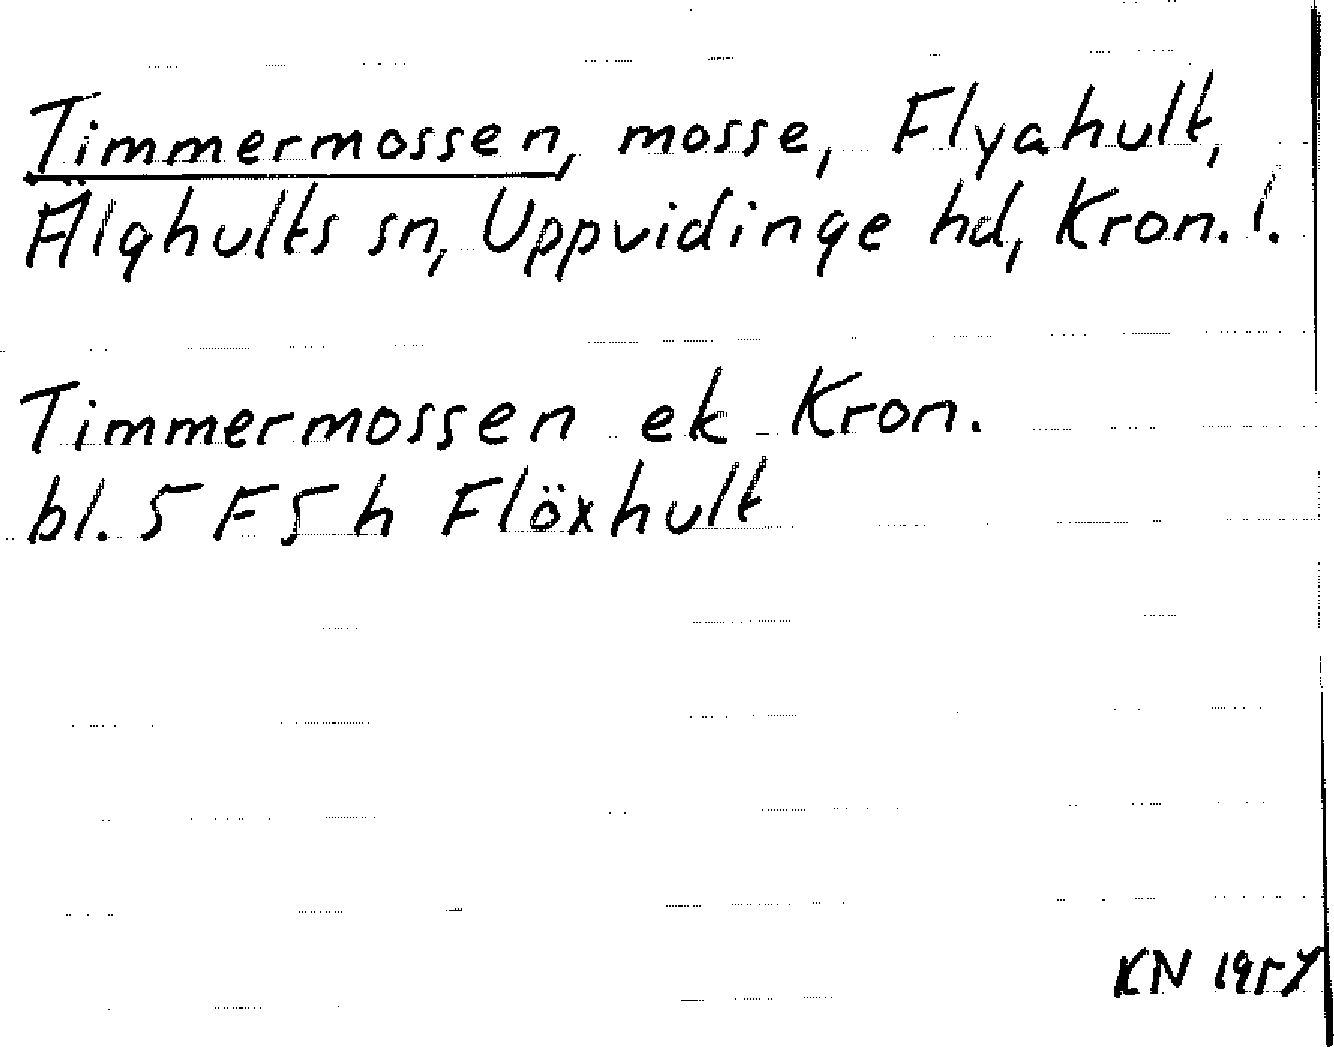 Timmermossen, mosse, Flyahult,
Älghults sn, Uppvidinge hd, Kron. l.
Timmermossen ek Kron.
bl. 5 F 5 h Flöxhult
KN 1957